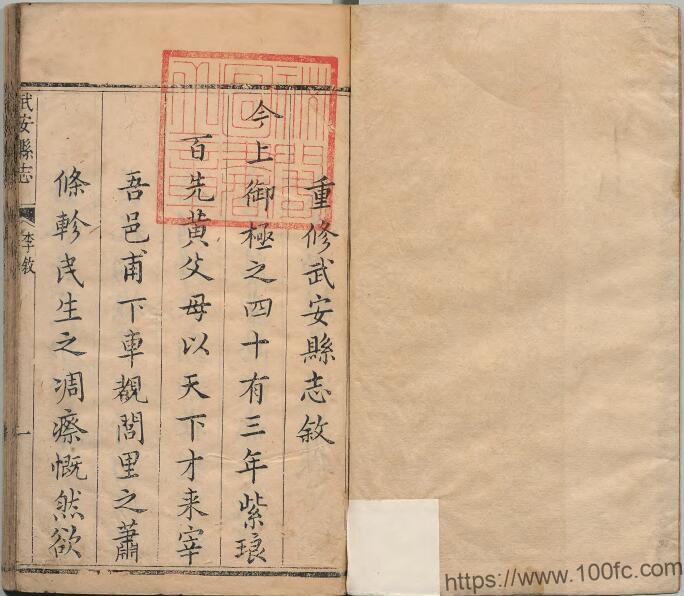 重修武安縣志敘
今上御極之四十有三年紫琅
百先黃父母以天下才来宰
吾邑甫下車覩閭里之蕭
條軫民生之凋瘵慨然欲
武安縣志
李敘
一
https://www.100fc.com